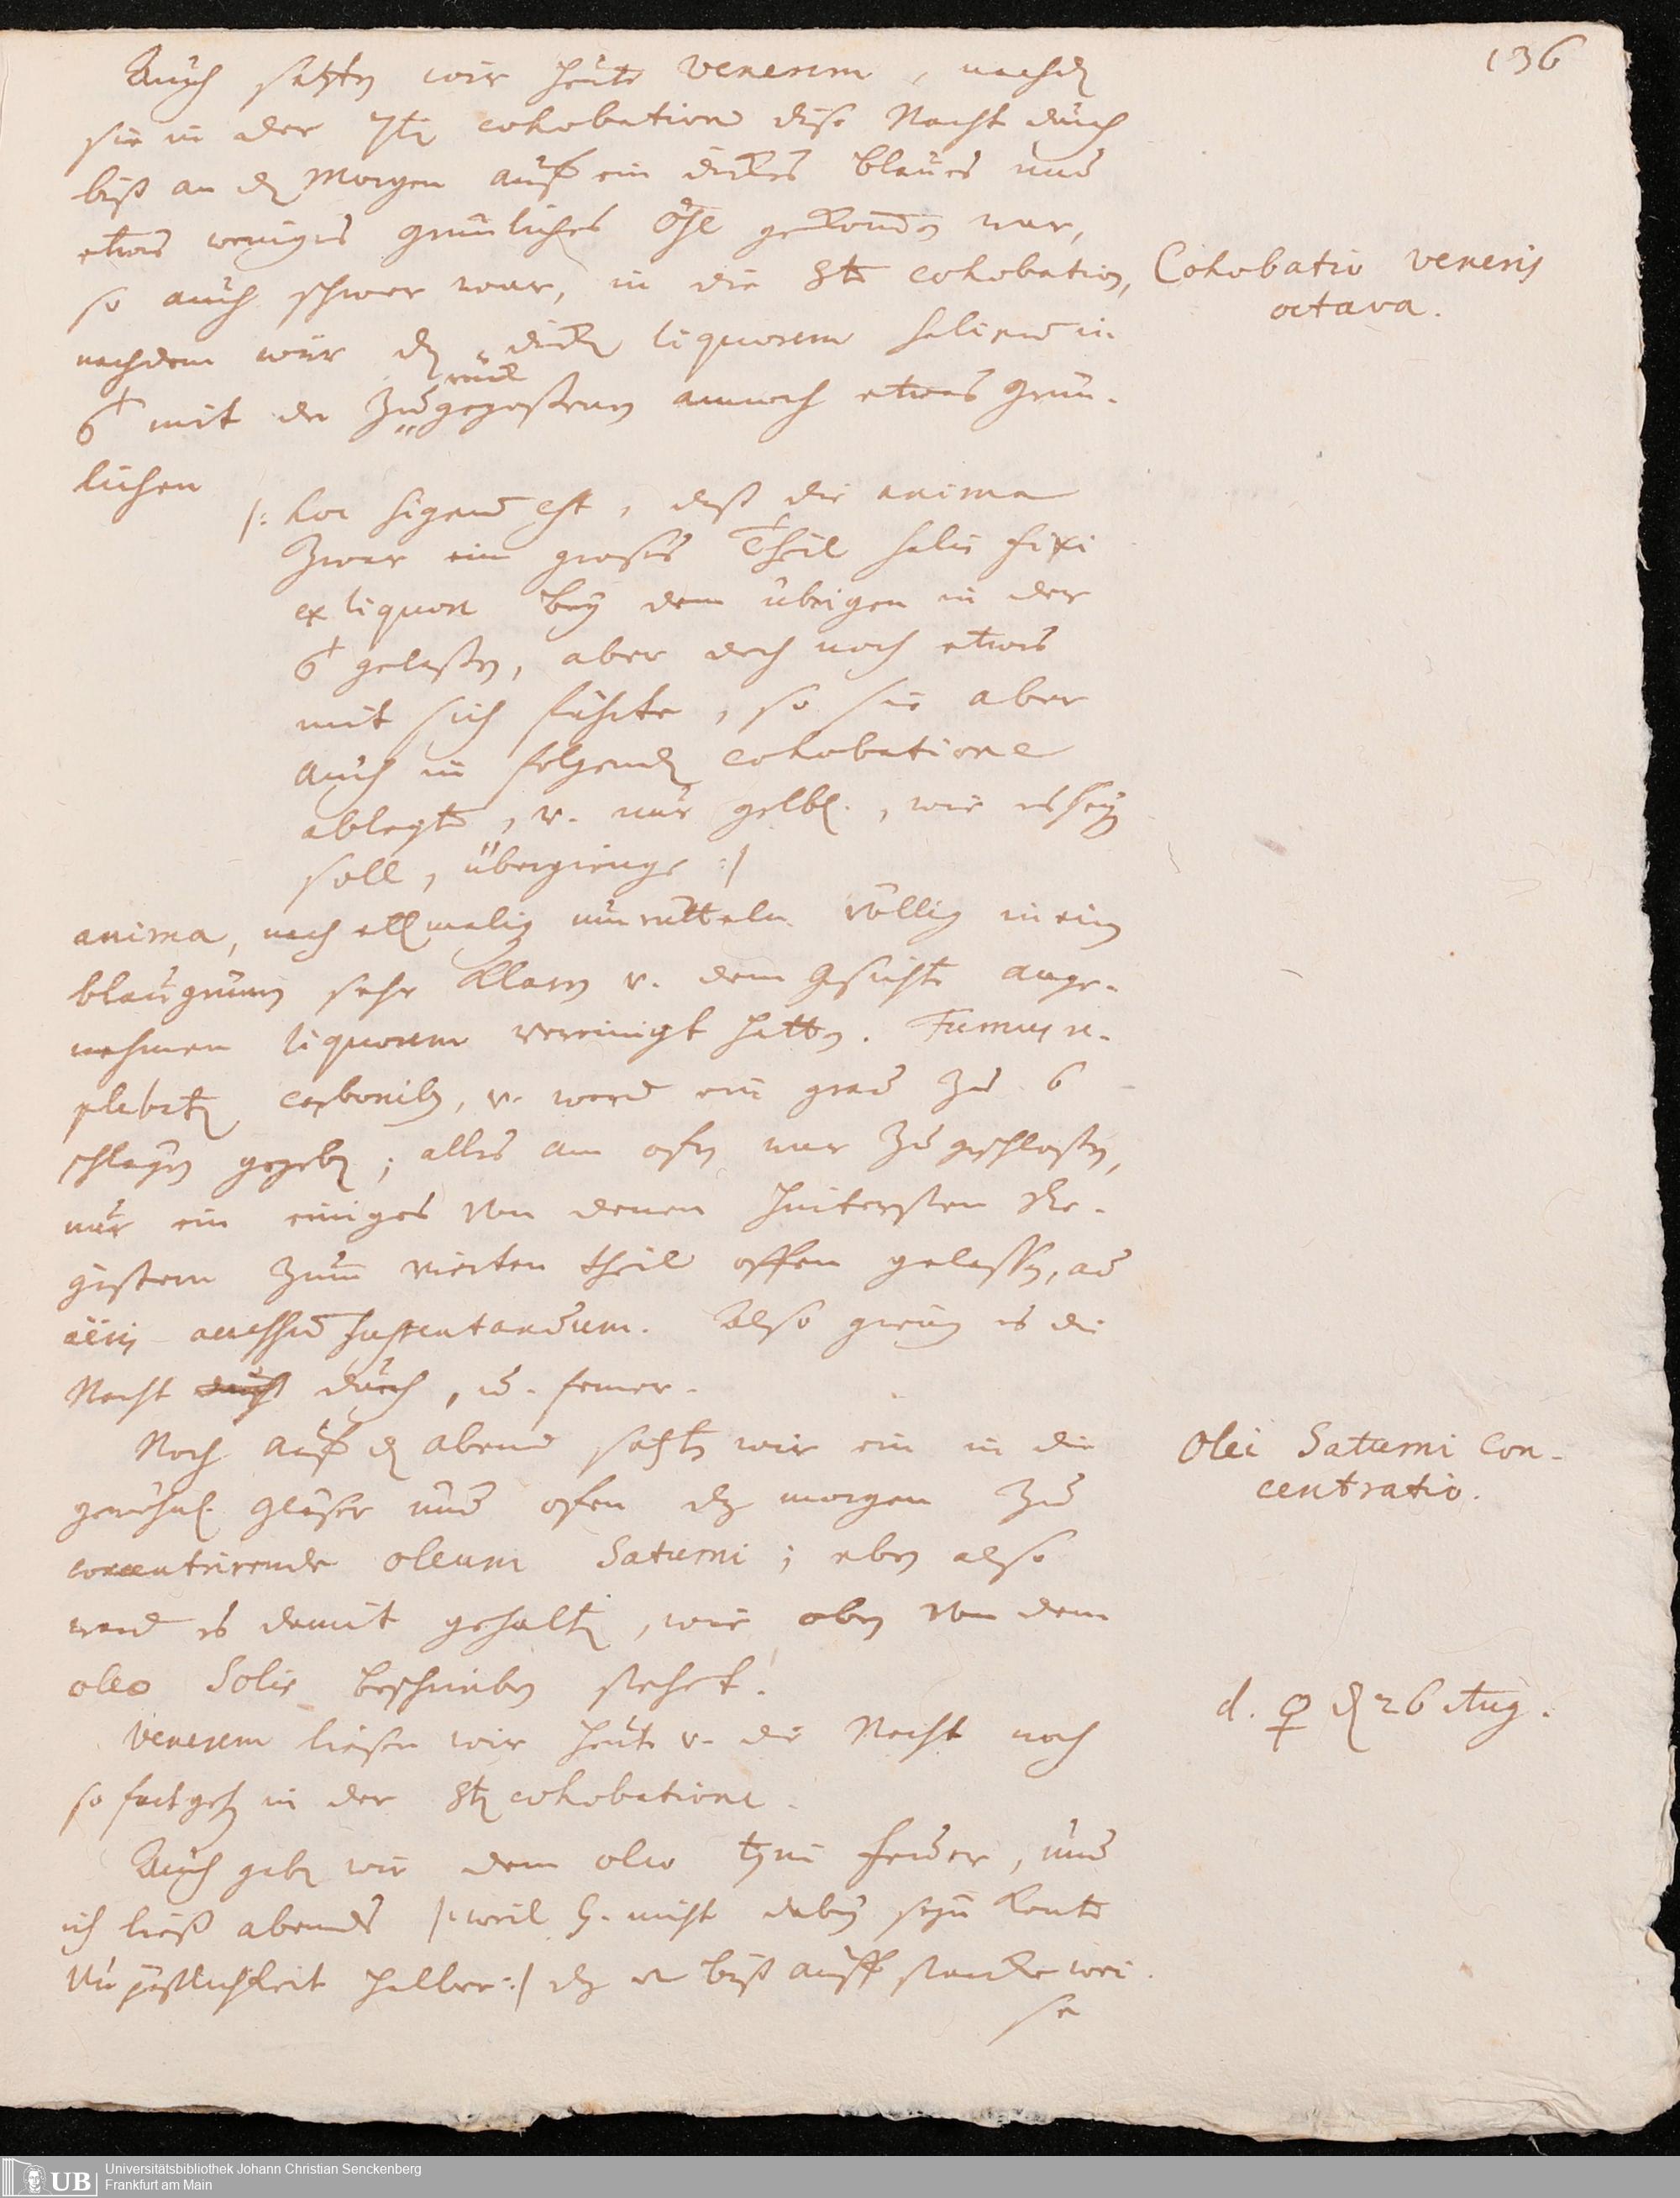 136
Auch satzten wir heute Venerem, nachdem
sie in der 7ten cohobation diese Nacht durch
biß an den Morgen auff ein dickes blaues und
etwas weniges grünliches Öhl gekommen war,
so auch schwer war, in die 8te cohobation,
Cohobatio Veneris
octava.
nachdem wir den dicken liquorem salium in
mit der zurück gegoßenen annoch etwas grün-
lichen
/: hoc signum est, daß die anima
zwar ein großes Theil salis fixi
ex liquore bey dem übrigen in der
gelaßen, aber doch noch etwas
mit sich führte, so sie aber
auch in folgender cohobatione
ablegte, v. nur gelbl., wie es seyn
soll, übergienge :/
anima, nach allmalig umrütteln völlig in ein
blaugrünen sehr klaren v. dem Gesichte ange-
nehmen liquorem vereinigt hatten. Furnus re-
plebatur carbonibus, v. ward ein grad zu 6
schlägen gegeben; alles am ofen war zugeschloßen,
nur ein einiges von denen hintersten Re-
gistern zum vierten theil offen gelassen, ad
aëris accessum sustentandum. Also gieng es die
Nacht durch, u. ferner.
Noch auff den abend satzten wir ein in die
Olei Saturni Con-
centratio.
gewöhnl. Gläser und ofen das morgen zu
concentrirende oleum Saturni; eben also
ward es damit gehalten, wie oben von dem
oleo Solis beschrieben stehet.
d. ♀ den 26 Aug.
Venerem ließen wir heute v. die Nacht noch
so fortgehen in der 8ten cohobatione.
Auch gaben wir dem oleo ♄ni feuer, und
ich ließ abends /: weil H. nicht dabey seyn konte
Unpäßlichkeit halber :/ das er biß auff starcke wei-
se